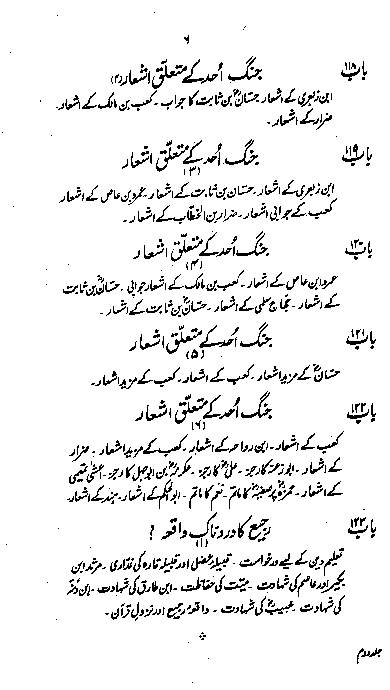 ۶
باب ۱۱۸ جنگ اُحد کے متعلّق اشعار (۲)
ابن زبعری کے اشعار حسّانؓ بن ثابت کا جواب۔ کعب بن مالک کے اشعار۔
ضرار کے اشعار۔
باب ۱۱۹ جنگ اُحد کے متعلّق اشعار
(۳)
ابن زبعری کے اشعار۔ حسّان بن ثابت کے اشعار۔ عمرو بن عاص کے اشعار
کعب کے جوابی اشعار۔ ضرار بن الخطاب کے اشعار۔
باب ۱۲۰ جنگ اُحد کے متعلّق اشعار
(۴)
عمرو ابن عاص کے اشعار۔ کعب بن مالک کے اشعار جوابی۔ حسّانؓ بن ثابت
کے اشعار۔ حجاج سلمی کے اشعار۔ حسّانؓ بن ثابت کے اشعار۔
باب ۱۲۱ جنگ اُحد کے متعلّق اشعار
(۵)
حسّانؓ کے مزید اشعار۔ کعب کے اشعار۔ کعب کے مزید اشعار۔
باب ۱۲۲ جنگ اُحد کے متعلّق اشعار
(۶)
کعب کے اشعار۔ ابن رواحہ کے اشعار۔ کعب کے مزید اشعار۔ ضرار
کے اشعار۔ ابو زعنہ کا رجز۔ علیؓ کا رجز۔ عکرمہؓ بن ابو جہل کا رجز۔ اعشیٰ تمیمی
کے اشعار۔ حمزہؓ پر صفیہؓ کا ماتم۔ نعم کا ماتم۔ ابوالحکم کے اشعار۔ ہند کے اشعار
باب ۱۲۳ رجیع کا دردناک واقعہ ؟
(۱)
تعلیم دین کے لیے درخواست۔ قبیلہ عضل اور قبیلہ قارہ کی غدّاری۔ مرثد ابن
بکیر اور عاصم کی شہادت۔ میّت کی حفاظت۔ ابن طارق کی شہادت۔ ابن دثنہ
کی شہادت۔ خبیبؓ کی شہادت۔ واقعہ رجیع اور نزول قرآن۔
جلد دوم